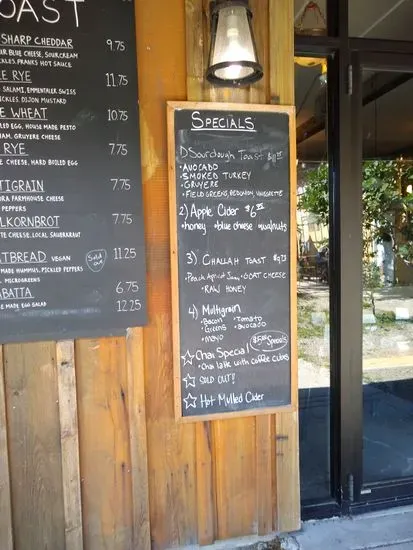 OAST
SHARP CHEDDAR 9.75
UR BLUE CHEESE, SOURCREAM
PICKLES, FRANKS HOT SAUCE
E RYE 11.75
SALAMI, EMMENTALER SWISS
PICKLES, DIJON MUSTARD
E WHEAT 10.75
ED EGG, HOUSE MADE PESTO
HAM, GRUYERE CHEESE
RYE 7.75
E CHEESE, HARD BOILED EGG
TIGRAIN 7.75
ORA FARMHOUSE CHEESE
PEPPERS
LKORNBROT 7.75
TE CHEESE, LOCAL SAUERKRAUT
ATBREAD VEGAN Sold out 11.25
MADE HUMMUS, PICKLED PEPPERS
MICROGREENS
ABATTA 6.75
E MADE EGG SALAD 12.25
SPECIALS
Sourdough Toast
• AVOCADO
• SMOKED TURKEY
• GRUYERE
• FIELD GREENS, RED ONION, VINEGRETTE
2) Apple Cider $6
• honey • blue cheese • walnuts
3) CHALLAH TOAST
• Peach Apricot Jam, • GOAT CHEESE
• RAW HONEY
4) Multigrain
• Bacon • Tomato
• Greens • avocado
• Mayo
☆ Chai Special
• Chai latte with coffee cubes
☆ SOLD OUT!!
☆ Hot Mulled Cider